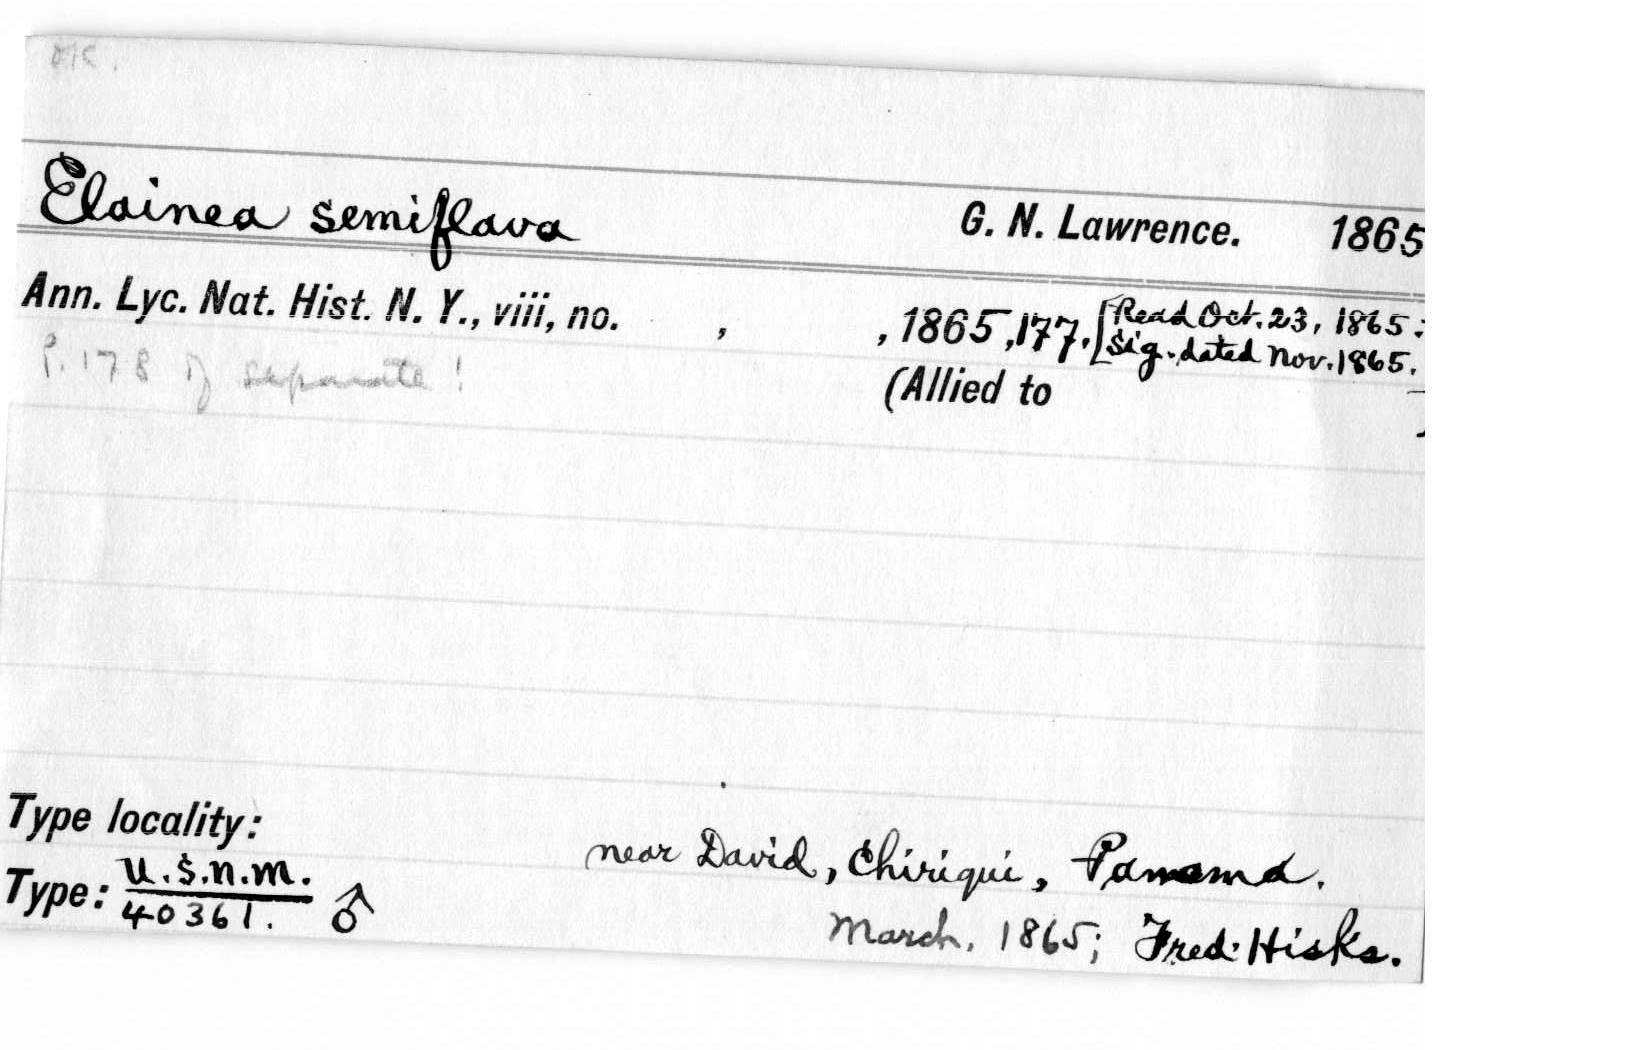 OK.
Elainea semiflava G. N. Lawrence. 1865
Ann. Lyc. Nat. Hist. N. Y., viii, no. , , 1865, 177. [Read Oct. 23, 1865:
Sig. dated Nov. 1865.
P. 178 of separate!
(Allied to )
Type locality:
near David, Chiriqui, Panama.
Type: U.S.N.M.
40361. ♂
March, 1865; Fred: Hisks.